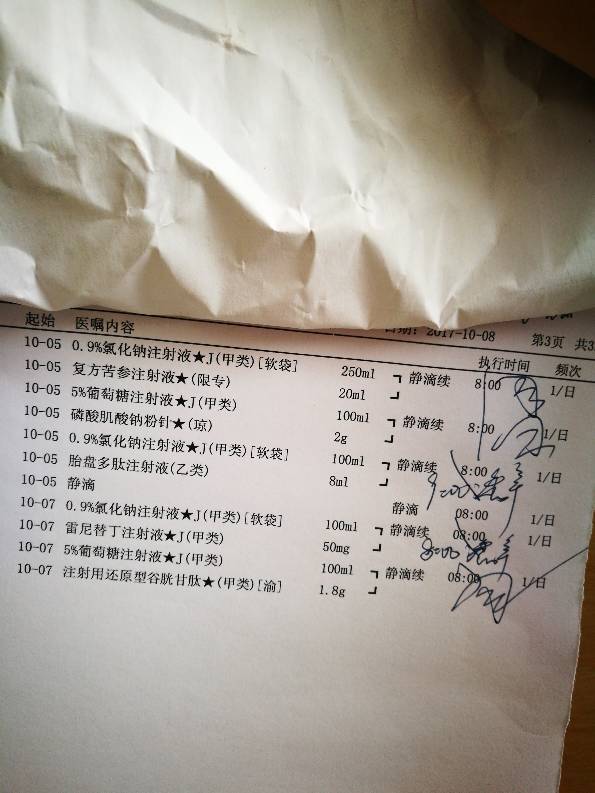 日期: 2017-10-08 第3页 共3
起始 医嘱内容 执行时间 频次
10-05 0.9%氯化钠注射液★J(甲类)[软袋] 250ml ┓静滴续 8:00 1/日
10-05 复方苦参注射液★(限专) 20ml ┛
10-05 5%葡萄糖注射液★J(甲类) 100ml ┓静滴续 8:00 1/日
10-05 磷酸肌酸钠粉针★(琼) 2g ┛
10-05 0.9%氯化钠注射液★J(甲类)[软袋] 100ml ┓静滴续 8:00 1/日
10-05 胎盘多肽注射液(乙类) 8ml ┛
10-05 静滴 静滴 08:00 1/日
10-07 0.9%氯化钠注射液★J(甲类)[软袋] 100ml ┓静滴续 08:00 1/日
10-07 雷尼替丁注射液★J(甲类) 50mg ┛
10-07 5%葡萄糖注射液★J(甲类) 100ml ┓静滴续 08:00 1/日
10-07 注射用还原型谷胱甘肽★(甲类)[渝] 1.8g ┛